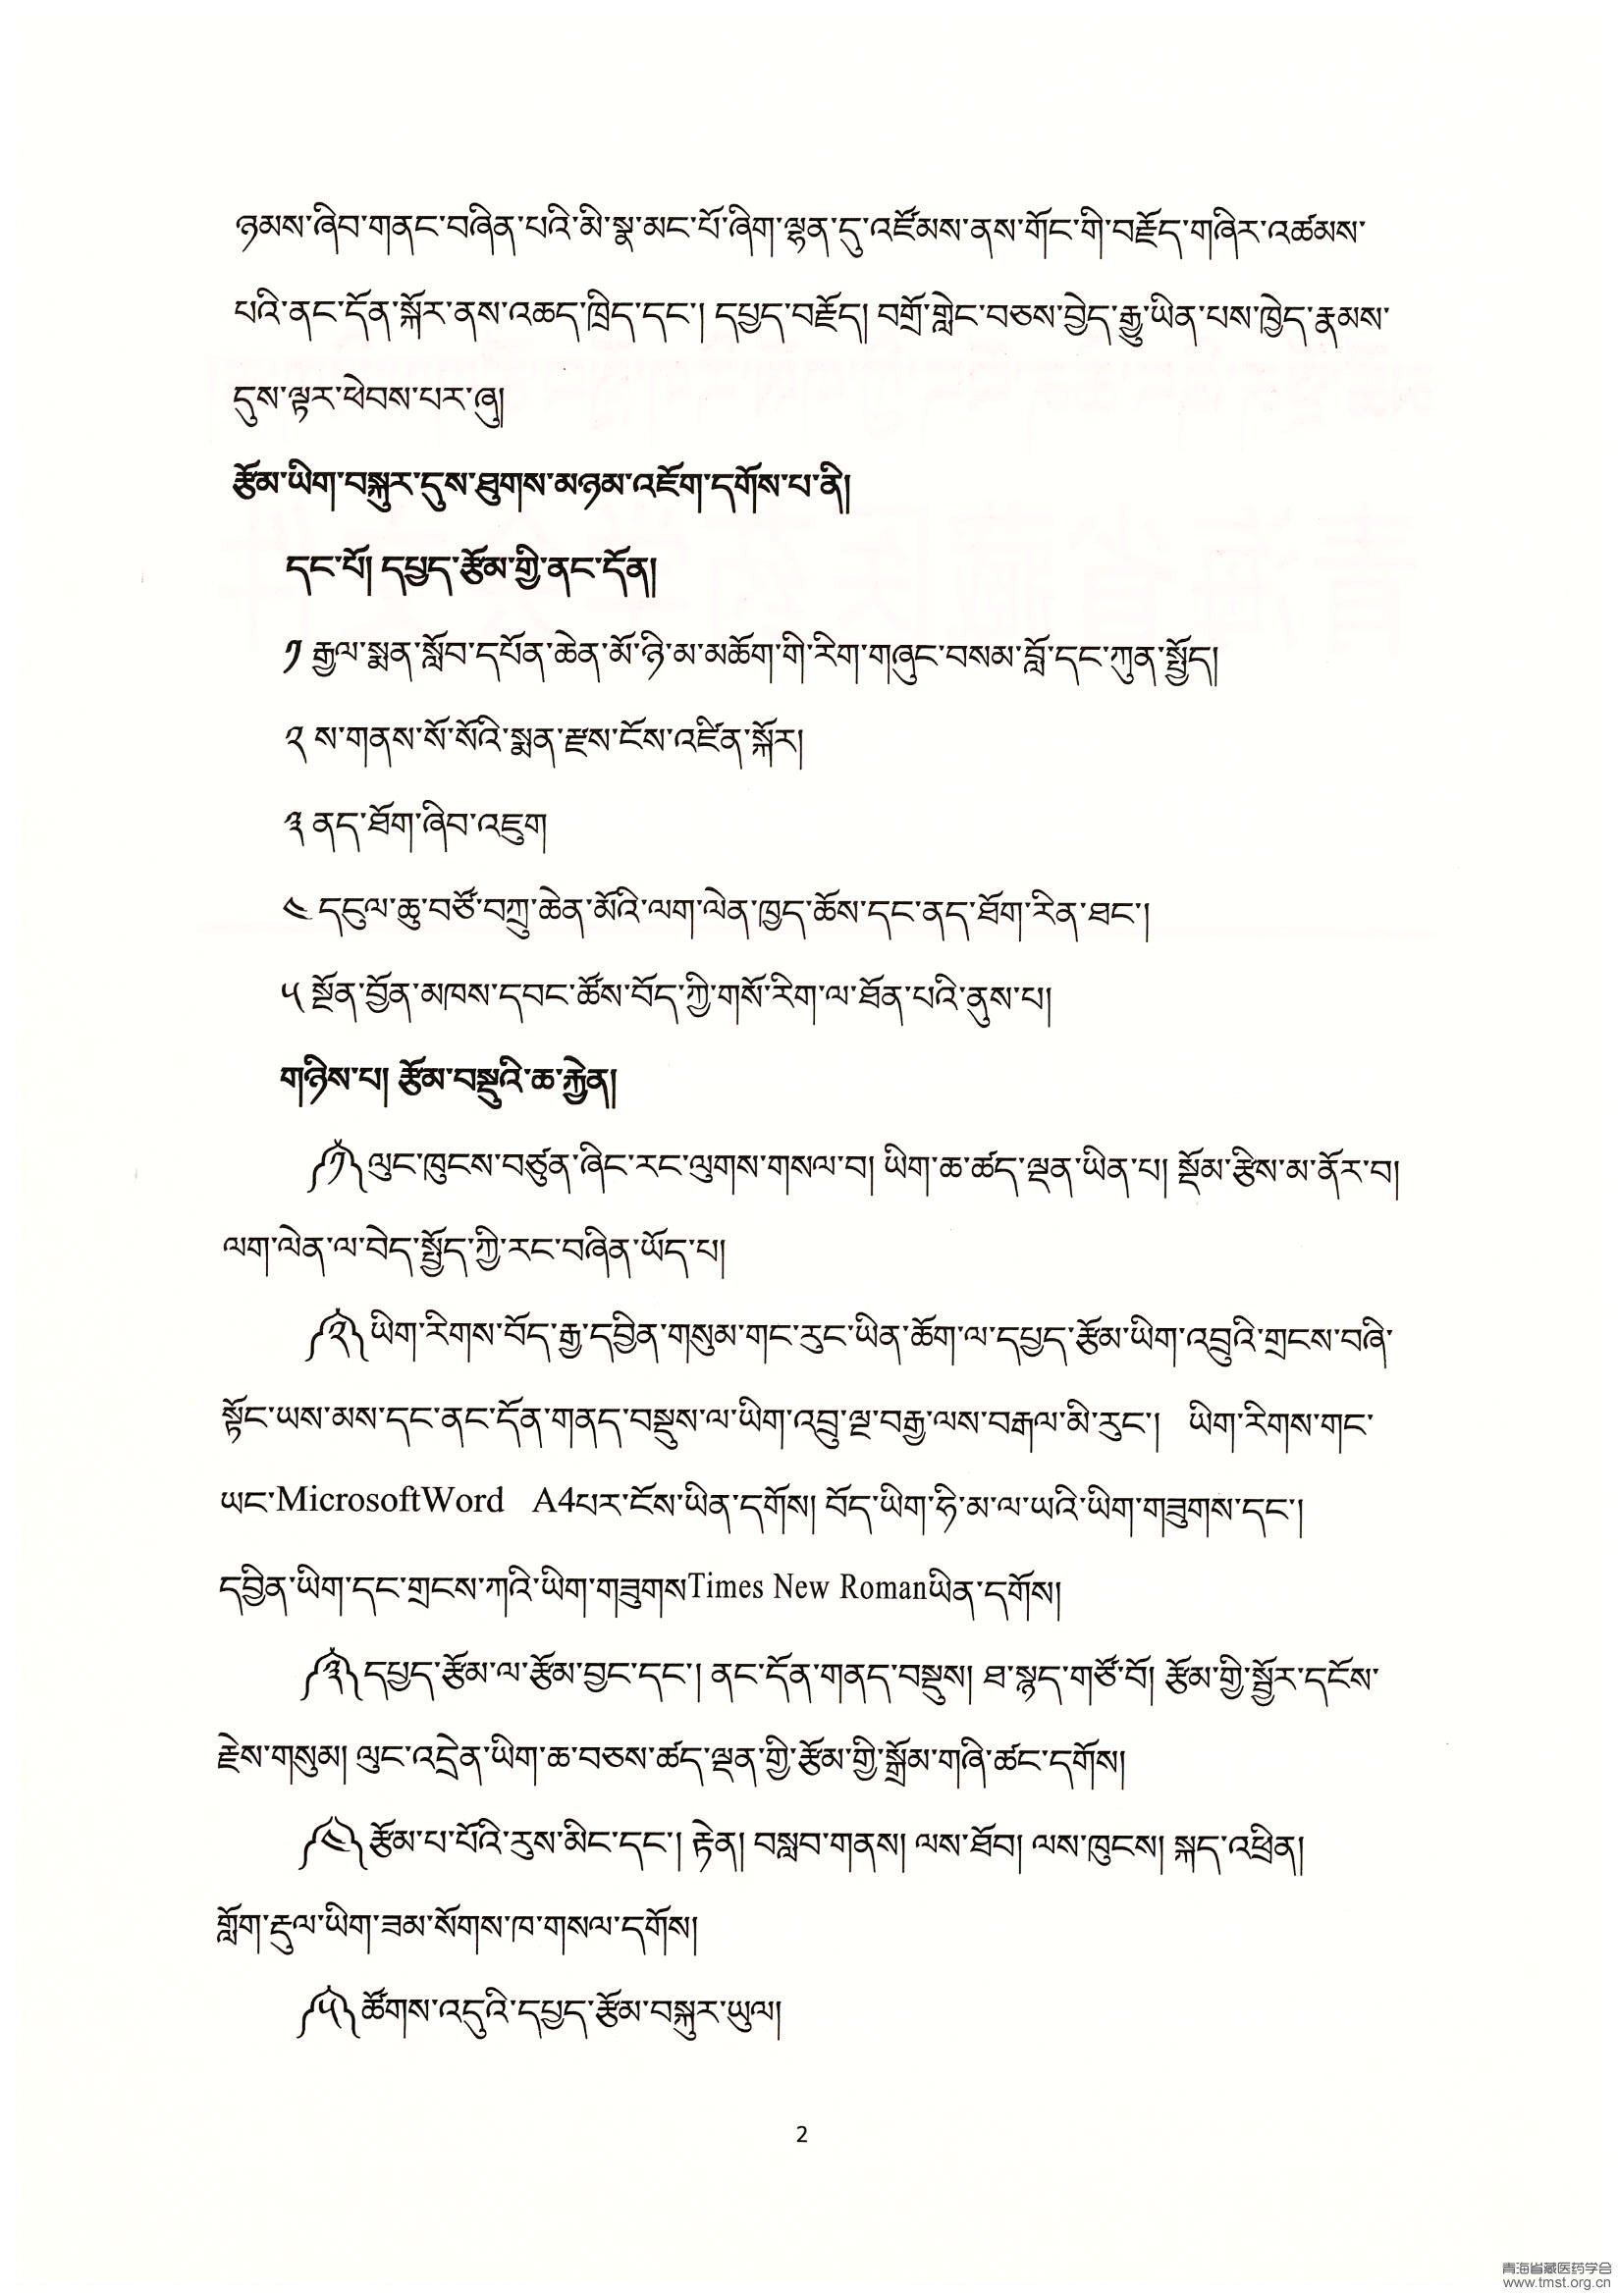 ཉམས་ཞིབ་གནང་བཞིན་པའི་མི་སྣ་མང་པོ་ཞིག་ལྷན་དུ་འཛོམས་ནས་གོང་གི་བརྗོད་གཞིར་འཚམས་
པའི་ནང་དོན་སྐོར་ནས་འཆད་ཁྲིད་དང་། དཔྱད་བརྗོད། བགྲོ་གླེང་བཅས་བྱེད་རྒྱུ་ཡིན་པས་ཁྱེད་རྣམས་
དུས་ལྟར་ཕེབས་པར་ཞུ།
རྩོམ་ཡིག་བསྐུར་དུས་ཐུགས་མཉམ་འཇོག་དགོས་པ་ནི།
དང་པོ། དཔྱད་རྩོམ་གྱི་ནང་དོན།
༡ རྒྱལ་སྨན་སློབ་དཔོན་ཆེན་མོ་ཉི་མ་མཆོག་གི་རིག་གཞུང་བསམ་བློ་དང་ཀུན་སྤྱོད།
༢ ས་གནས་སོ་སོའི་སྨན་རྫས་ངོས་འཛིན་སྐོར།
༣ ནད་ཐོག་ཞིབ་འཇུག
༤ དངུལ་ཆུ་བཙོ་བཀྲུ་ཆེན་མོའི་ལག་ལེན་ཁྱད་ཆོས་དང་ནད་ཐོག་རིན་ཐང་།
༥ སྔོན་བྱོན་མཁས་དབང་ཚོས་བོད་ཀྱི་གསོ་རིག་ལ་ཐོན་པའི་ནུས་པ།
གཉིས་པ། རྩོམ་བསྡུའི་ཆ་རྐྱེན།
༼༡༽ ལུང་ཁུངས་བཙུན་ཞིང་རང་ལུགས་གསལ་བ། ཡིག་ཆ་ཚད་ལྡན་ཡིན་པ། སྡོམ་རྩིས་མ་ནོར་བ།
ལག་ལེན་ལ་བེད་སྤྱོད་ཀྱི་རང་བཞིན་ཡོད་པ།
༼༢༽ ཡིག་རིགས་བོད་རྒྱ་དབྱིན་གསུམ་གང་རུང་ཡིན་ཆོག་ལ་དཔྱད་རྩོམ་ཡིག་འབྲུའི་གྲངས་བཞི་
སྟོང་ཡས་མས་དང་ནང་དོན་གནད་བསྡུས་ལ་ཡིག་འབྲུ་ལྔ་བརྒྱ་ལས་བརྒལ་མི་རུང་།  ཡིག་རིགས་གང་
ཡང་MicrosoftWord  A4པར་ངོས་ཡིན་དགོས། བོད་ཡིག་ཧི་མ་ལ་ཡའི་ཡིག་གཟུགས་དང་།
དབྱིན་ཡིག་དང་གྲངས་ཀའི་ཡིག་གཟུགསTimes New Romanཡིན་དགོས།
༼༣༽ དཔྱད་རྩོམ་ལ་རྩོམ་བྱང་དང་། ནང་དོན་གནད་བསྡུས། ཐ་སྙད་གཙོ་བོ། རྩོམ་གྱི་སྦྱོར་དངོས་
རྗེས་གསུམ། ལུང་འདྲེན་ཡིག་ཆ་བཅས་ཚད་ལྡན་གྱི་རྩོམ་གྱི་སྒྲོམ་གཞི་ཚང་དགོས།
༼༤༽ རྩོམ་པ་པོའི་རུས་མིང་དང་། རྟེན། བསླབ་གནས། ལས་ཐོབ། ལས་ཁུངས། སྐད་འཕྲིན།
གློག་རྡུལ་ཡིག་ཟམ་སོགས་ཁ་གསལ་དགོས།
༼༥༽ ཚོགས་འདུའི་དཔྱད་རྩོམ་བསྐུར་ཡུལ།
2
青海省藏医药学会
www.tmst.org.cn